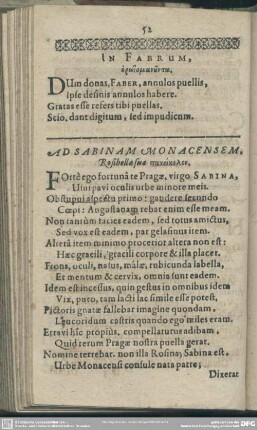 52
IN FABRUM,
DUm donas, FABER, annulos puellis,
Ipse desinis annulos habere.
Gratas esse refers tibi puellas.
Scio, dant digitum, sed impudicum.
AD SABINAM MONACENSEM,
Rosibellæ suæ
FOrtè ego fortunâ te Pragæ, virgo SABINA,
Ut urpavi oculis urbe minore meis.
Obstupui aspectu primo: gaudere secundo
Cœpi: Augustanam rebar enim esse meam.
Non tantùm facies eadem, sed totus amictus,
Sed vox est eadem, par gelasinus item.
Alterâ item minimo procerior altera non est:
Hæc gracili, gracili corpore & illa placet.
Frons, oculi, nasus, malæ, rubicunda labella,
Et mentum & cervix, omnia sunt eadem.
Idem est incessus, quin gestus in omnibus idem
Vix, puto, tam lacti lac simile esse potest,
Pictoris gnatæ fallebar imagine quondam,
Leucoridum castris quando ego miles eram.
Erravi hîc propiùs, compellaturus adibam,
Quid rerum Pragæ nostra puella gerat.
Nomine terrebar. non illa Rosina, Sabina est,
Urbe Monacensi consule nata patre,
Dixerat